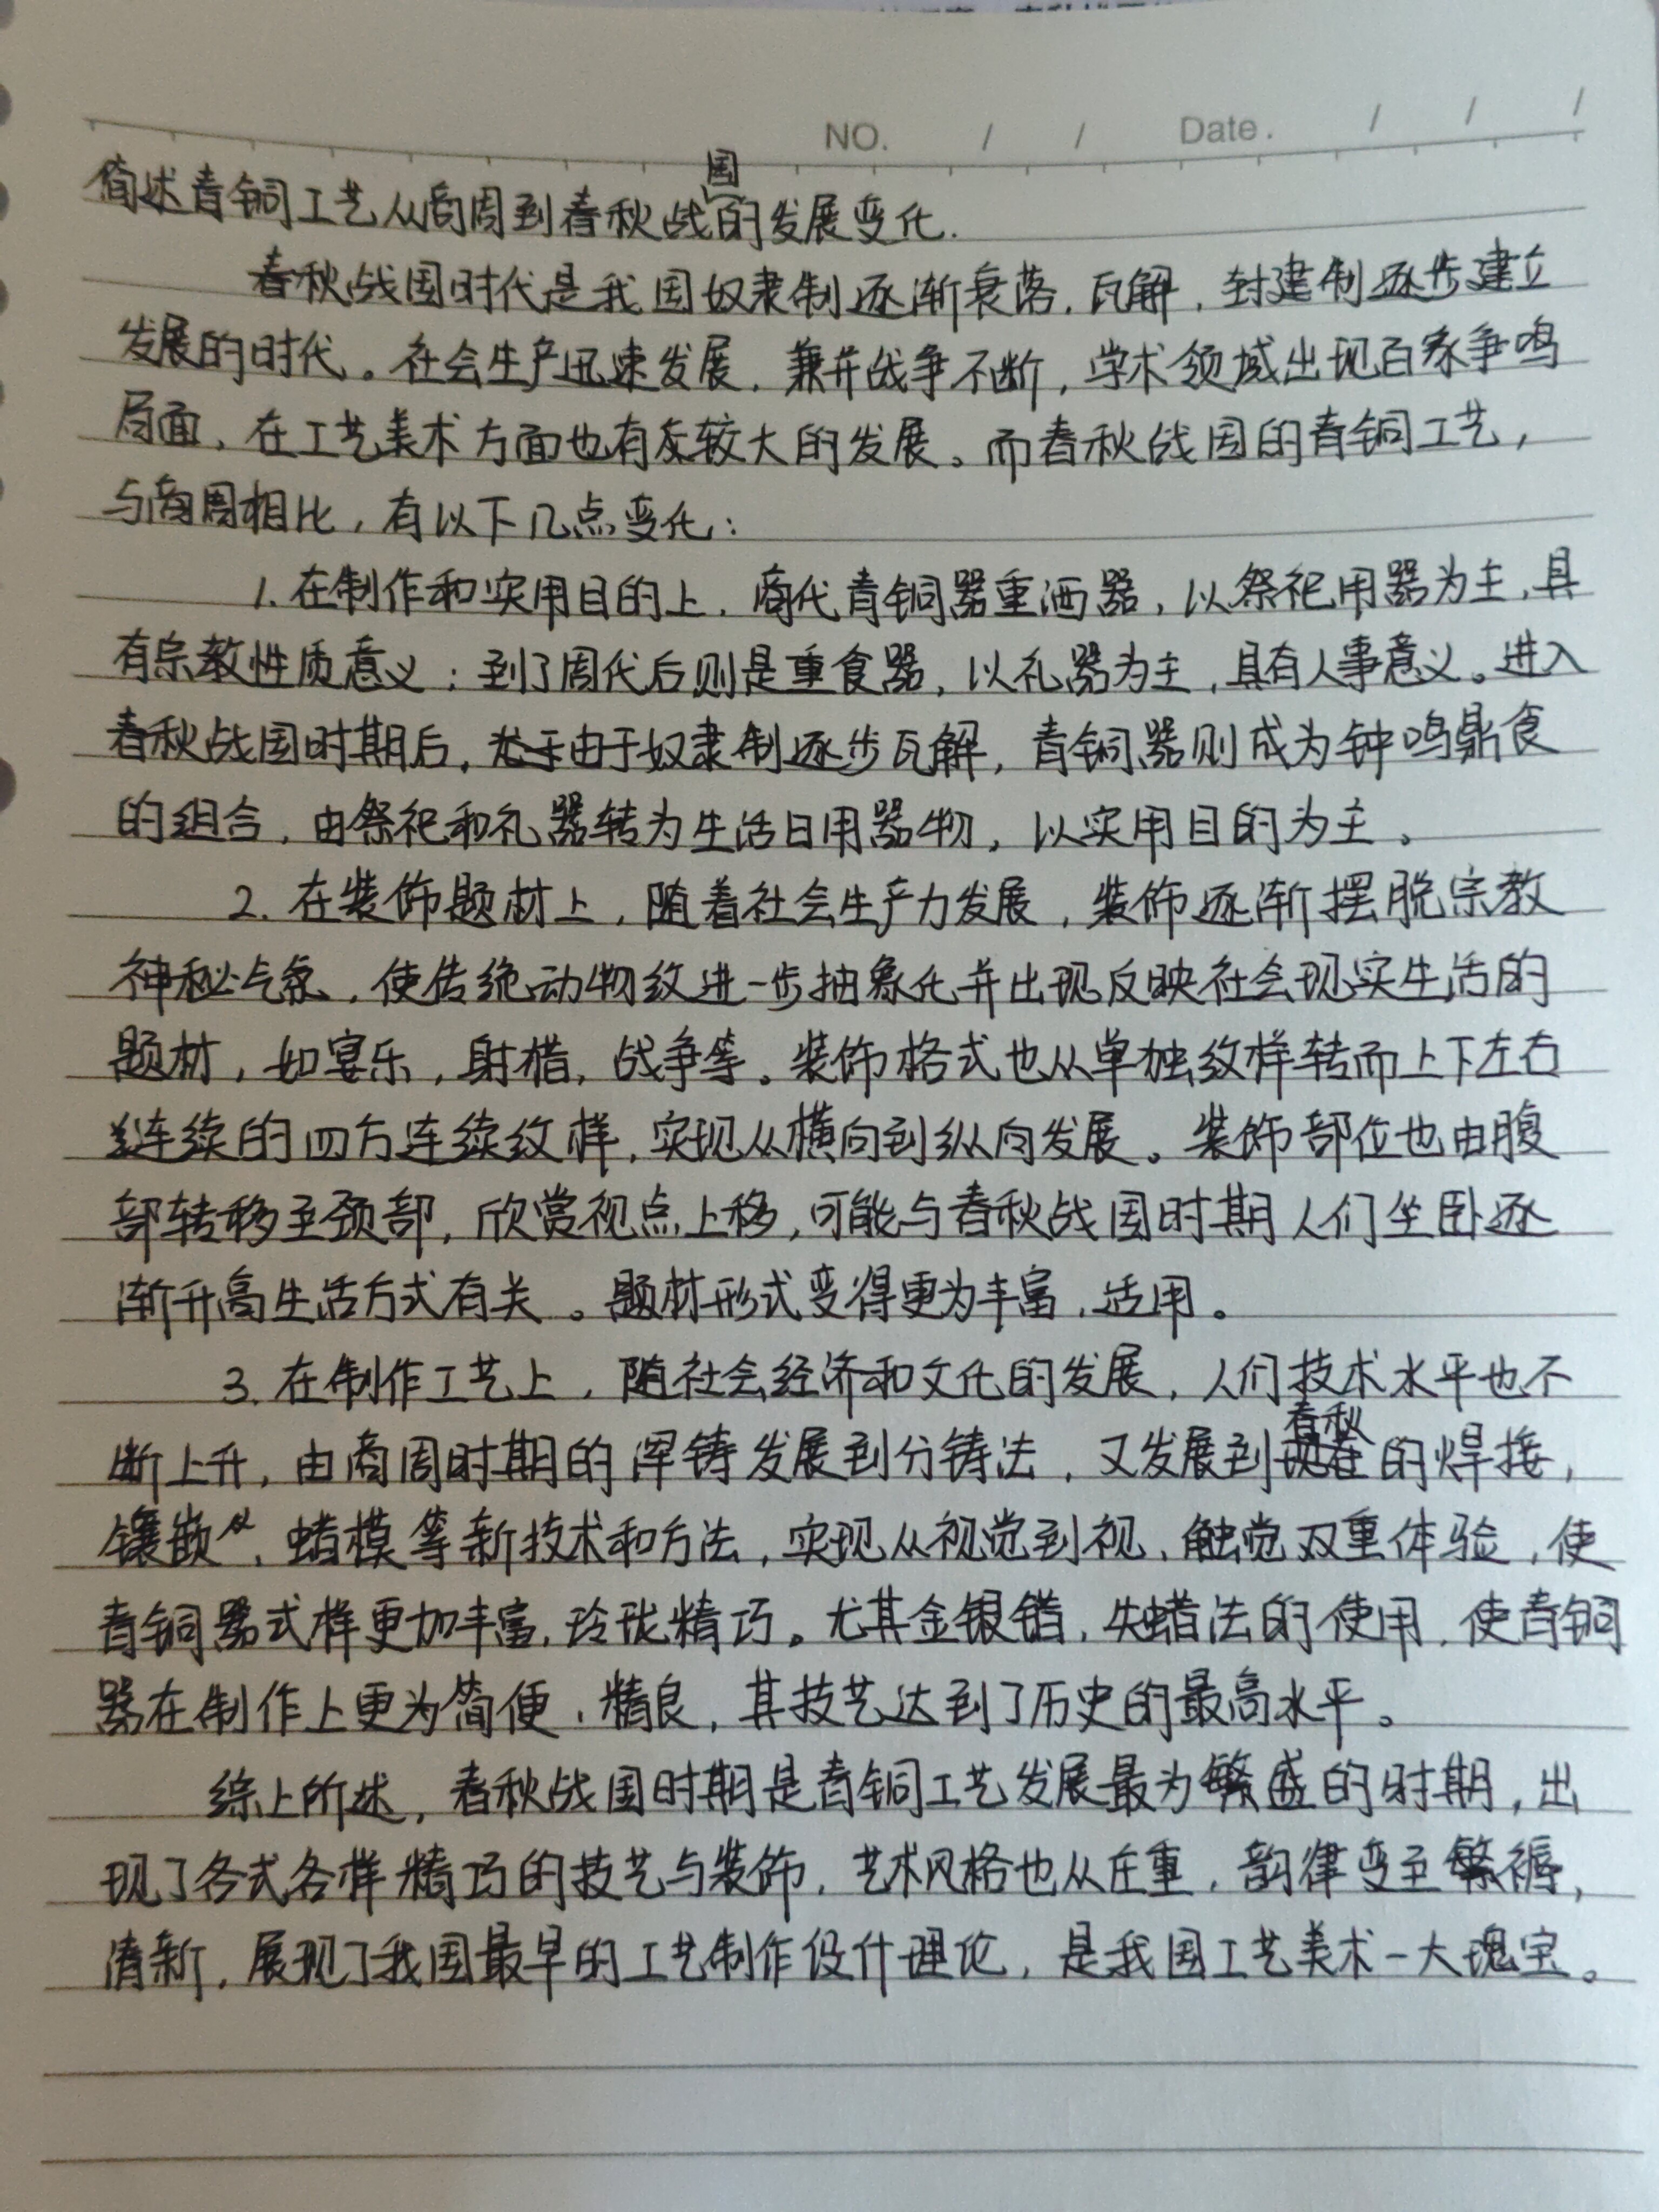 NO. / / Date. / / /
简述青铜工艺从商周到春秋战国的发展变化.
春秋战国时代是我国奴隶制逐渐衰落,瓦解,封建制逐步建立
发展的时代。社会生产迅速发展,兼并战争不断,学术领域出现百家争鸣
局面,在工艺美术方面也有较大的发展。而春秋战国的青铜工艺,
与商周相比,有以下几点变化:
1.在制作和实用目的上,商代青铜器重酒器,以祭祀用器为主,具
有宗教性质意义;到了周代后则是重食器,以礼器为主,具有人事意义。进入
春秋战国时期后,由于奴隶制逐步瓦解,青铜器则成为钟鸣鼎食
的组合,由祭祀和礼器转为生活日用器物,以实用目的为主。
2.在装饰题材上,随着社会生产力发展,装饰逐渐摆脱宗教
神秘气氛,使传统动物纹进一步抽象化并出现反映社会现实生活的
题材,如宴乐,射猎,战争等。装饰格式也从单独纹样转而上下左右
连续的四方连续纹样,实现从横向到纵向发展。装饰部位也由腹
部转移至颈部,欣赏视点上移,可能与春秋战国时期人们坐卧逐
渐升高生活方式有关。题材形式变得更为丰富,适用。
3.在制作工艺上,随社会经济和文化的发展,人们技术水平也不
断上升,由商周时期的浑铸发展到分铸法,又发展到春秋的焊接,
镶嵌,蜡模等新技术和方法,实现从视觉到视、触觉双重体验,使
青铜器式样更加丰富,玲珑精巧。尤其金银错,失蜡法的使用,使青铜
器在制作上更为简便,精良,其技艺达到了历史的最高水平。
综上所述,春秋战国时期是青铜工艺发展最为繁盛的时期,出
现了各式各样精巧的技艺与装饰,艺术风格也从庄重,韵律变至繁缛,
清新,展现了我国最早的工艺制作设计理论,是我国工艺美术一大瑰宝。